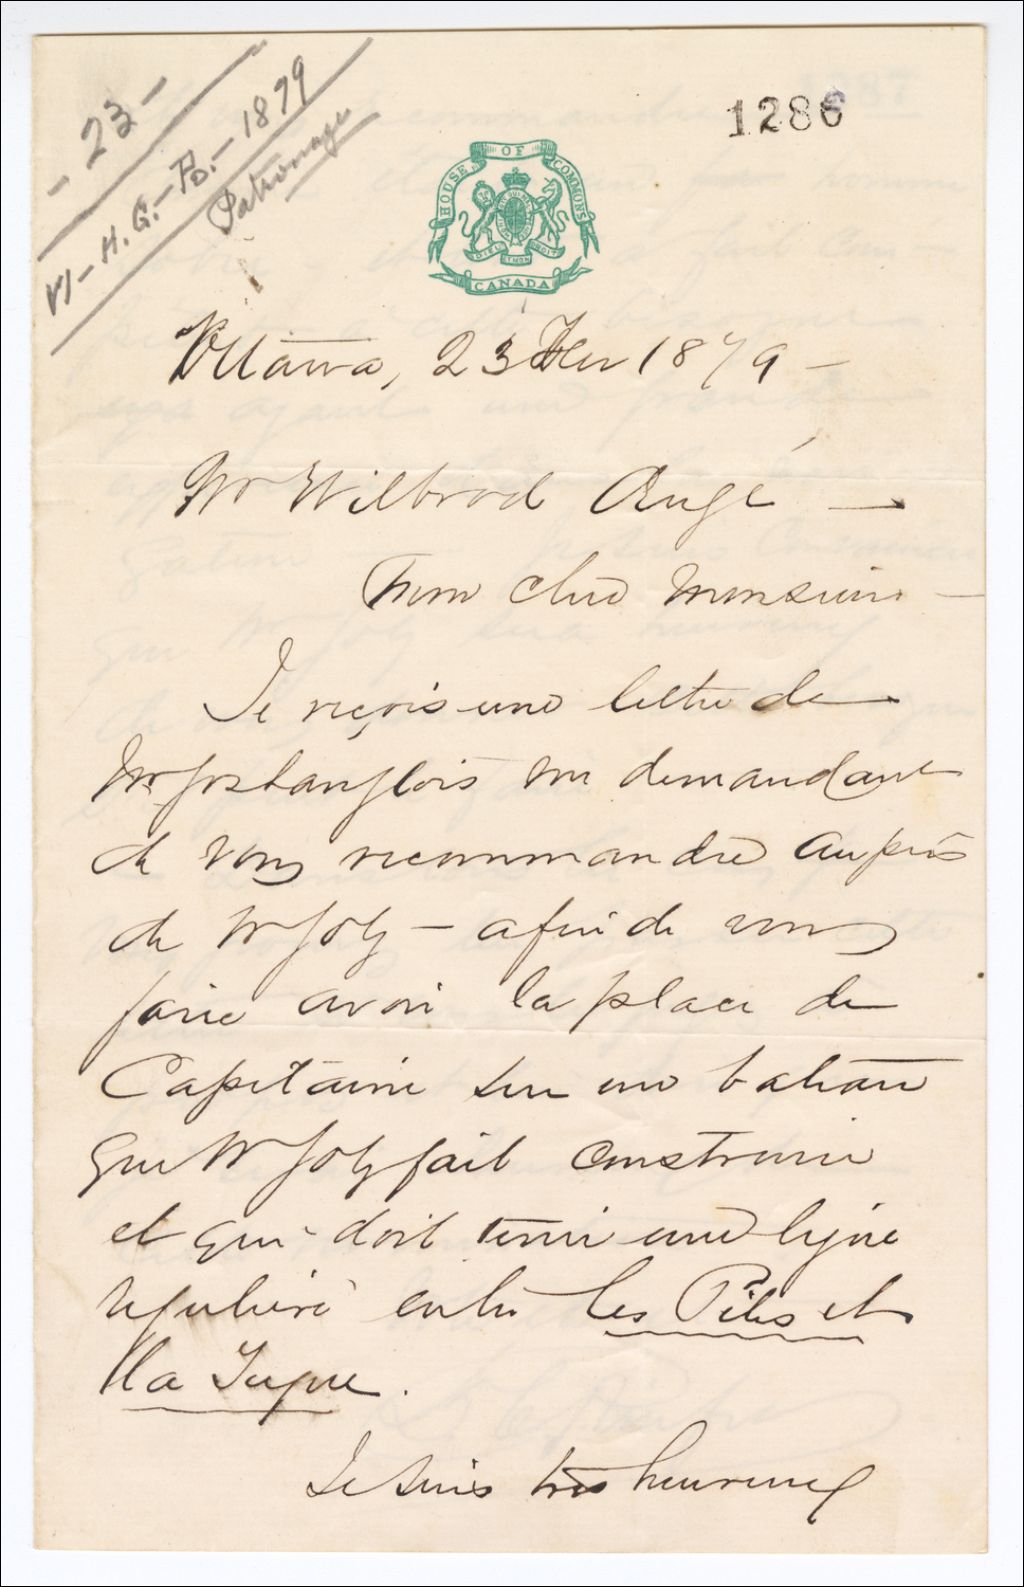 - 23 -
VI - H. G. - Po. - 1879
Patronage
1286
HOUSE OF COMMONS
DIEU ET MON DROIT
CANADA
Ottawa, 23 Fev 1879 -
Mr Wilbrod Augé -
Mon cher Monsieur -
Je reçois une lettre de
Mr Jos Langlois me demandant
de vous recommander auprès
de Mr Joly - afin de vous
faire avoir la place de
Capitaine sur un bateau
que Mr Joly fait construire
et qui doit tenir une ligne
régulière entre Les Piles et
la Tuque.
Je suis très heureux